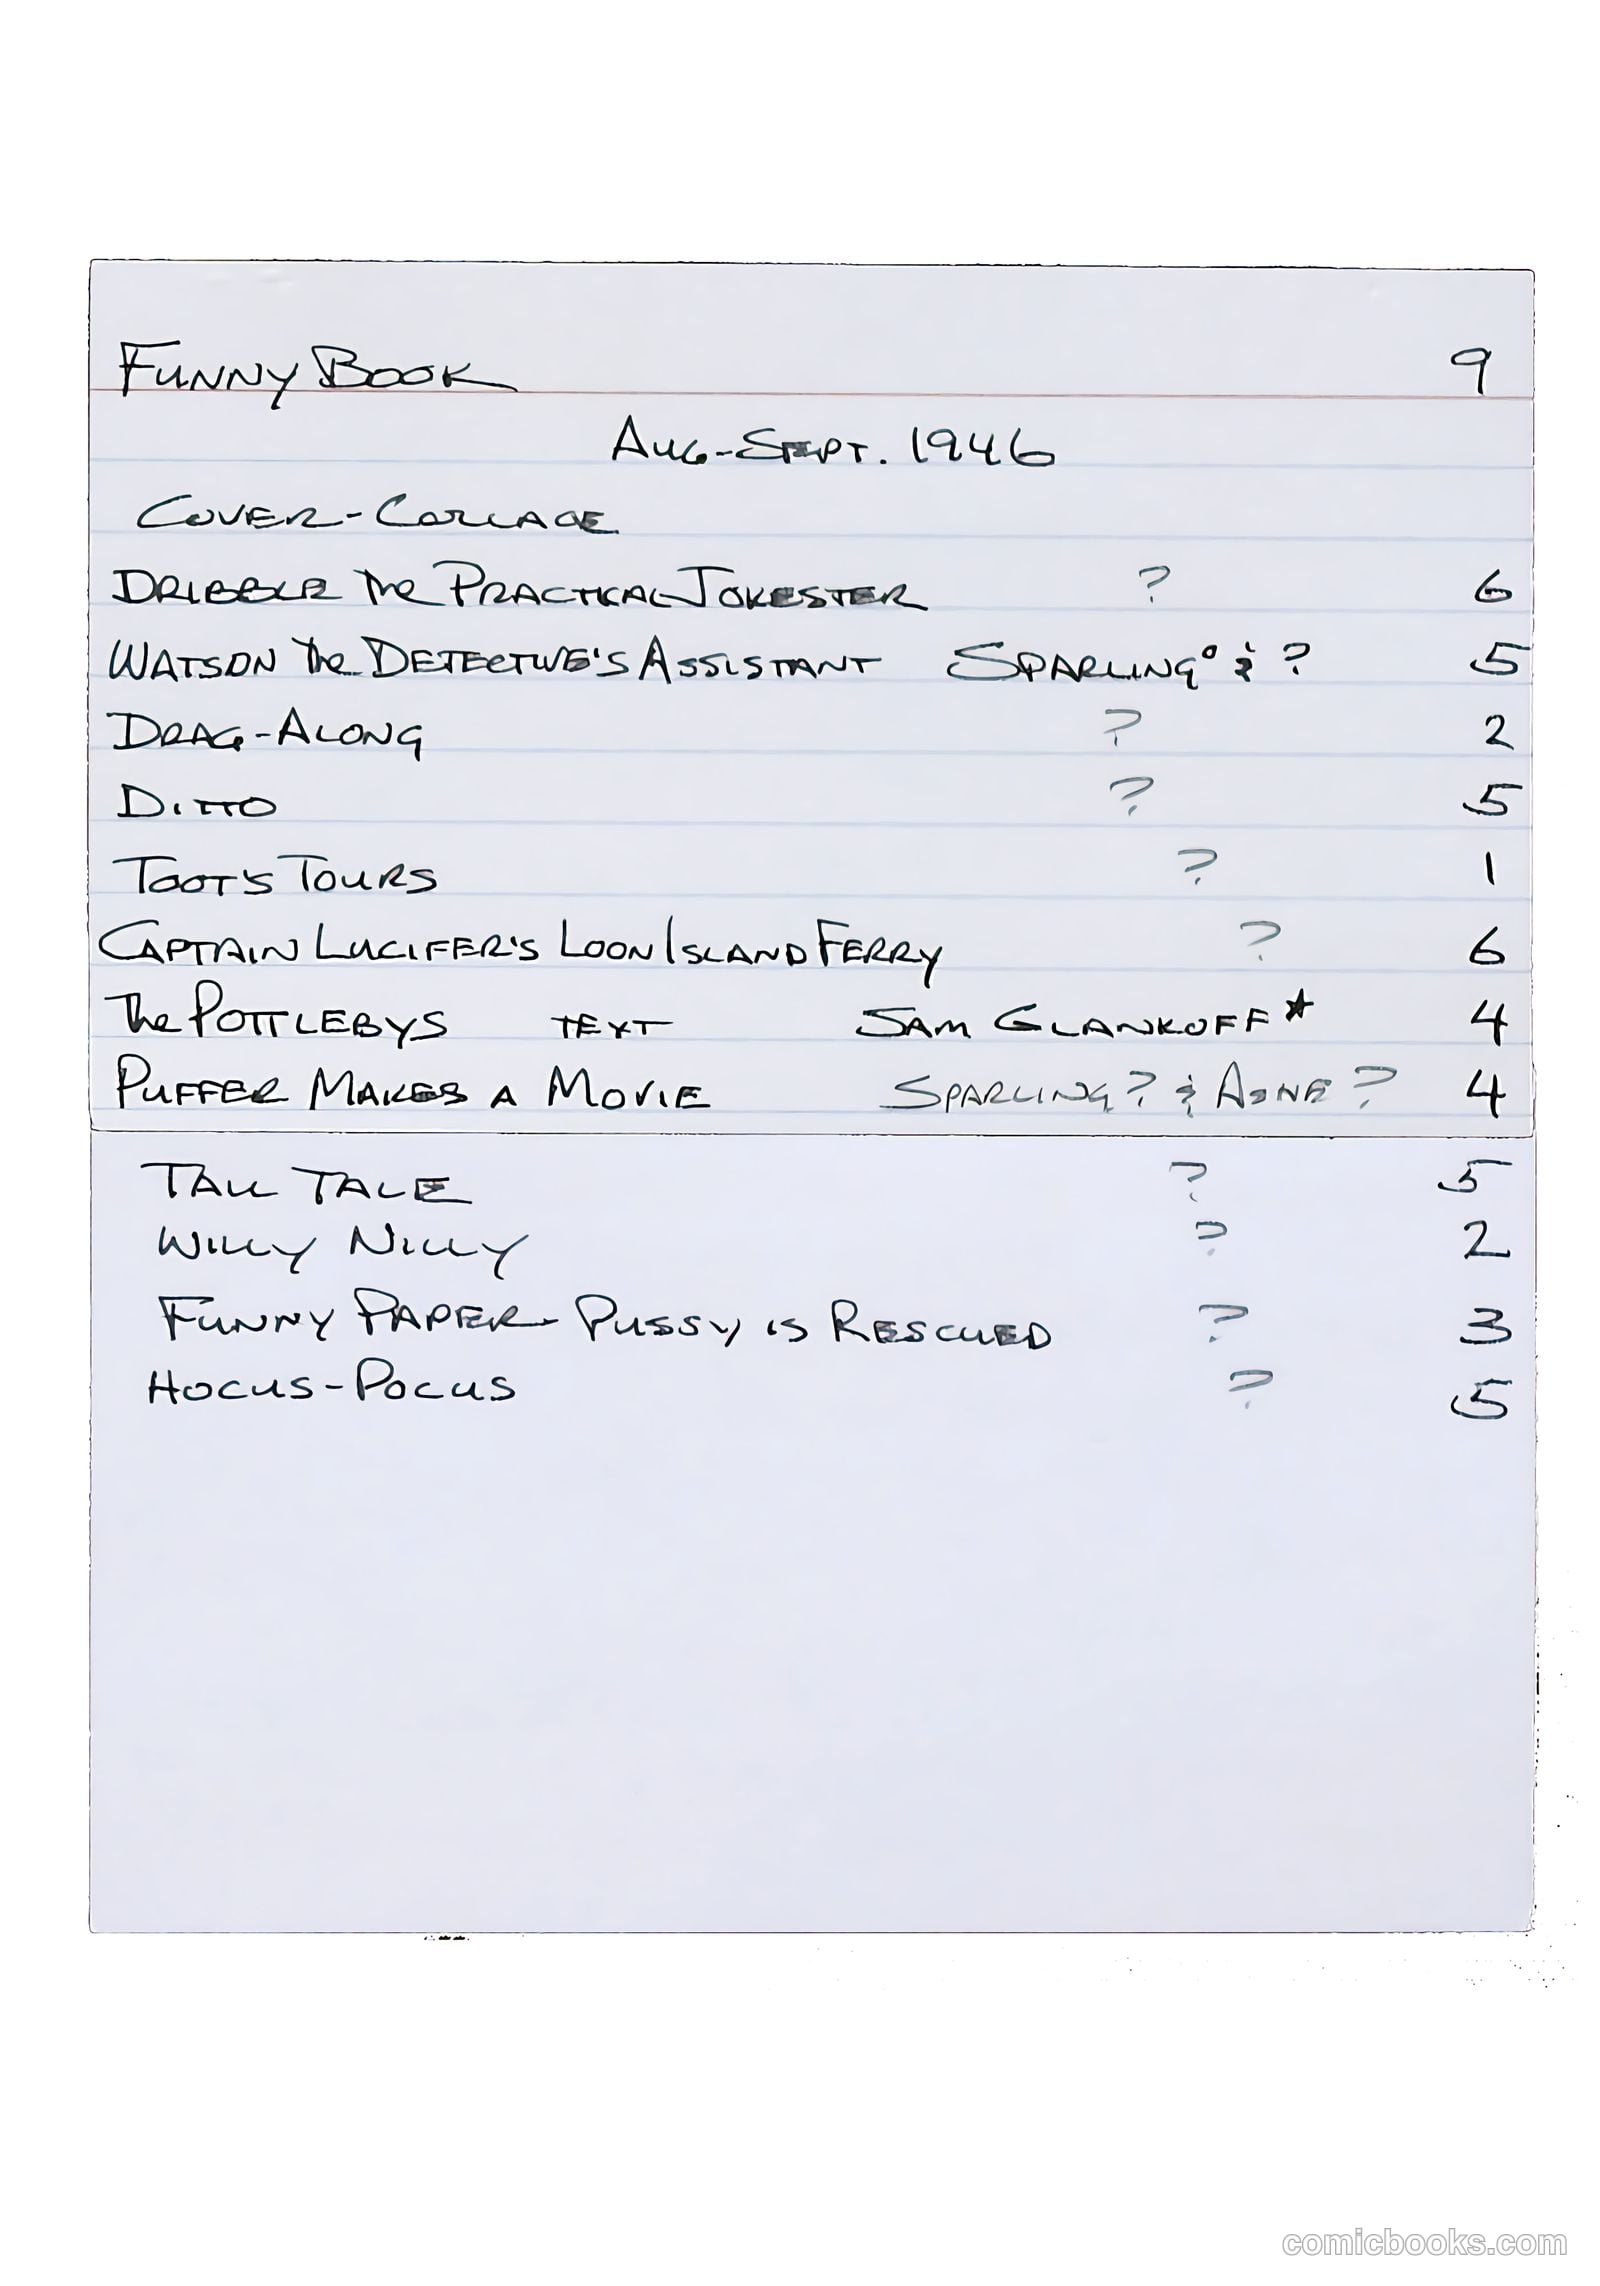 Funny Book 9
Aug-Sept. 1946
Cover-Collage
Dribble the Practical Jokester ? 6
Watson the Detective's Assistant Sparling° & ? 5
Drag-Along ? 2
Ditto ? 5
Toot's Tours ? 1
Captain Lucifer's Loon Island Ferry ? 6
The Pottlebys text Sam Glankoff★ 4
Puffer Makes a Movie Sparling? & ? 4
Tall Tale ? 5
Willy Nilly ? 2
Funny Paper-Pussy is Rescued ? 3
Hocus-Pocus ? 5
comicbooks.com